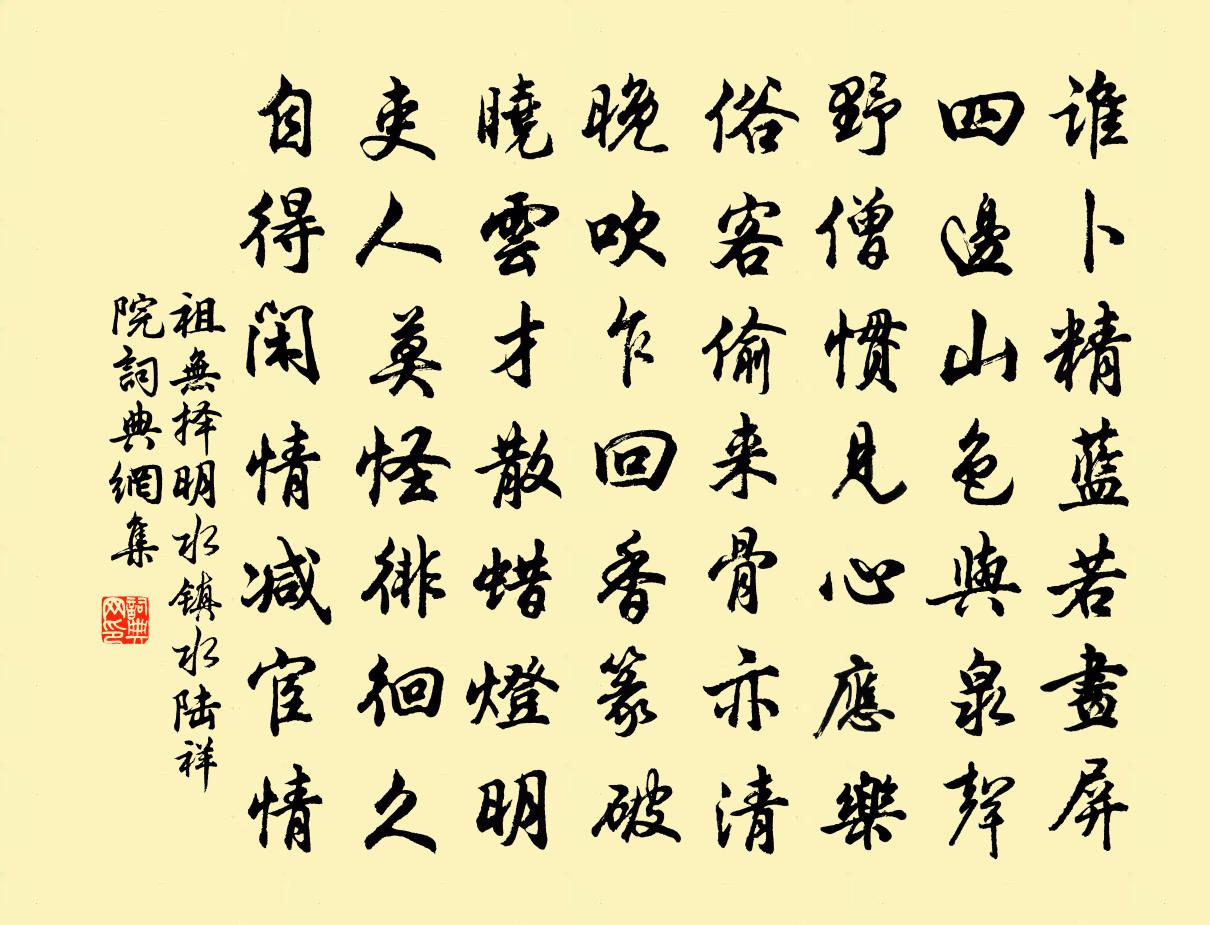 谁卜精藍若畫屏
四邊山色與泉聲
野僧慣見心應樂
俗客偷来骨亦清
晚吹乍回香篆破
曉雲才散蜡燈明
吏人莫怪徘徊久
自得闲情减宦情
祖無择明水镇水陆祥
院詞典網集
詞典
网印